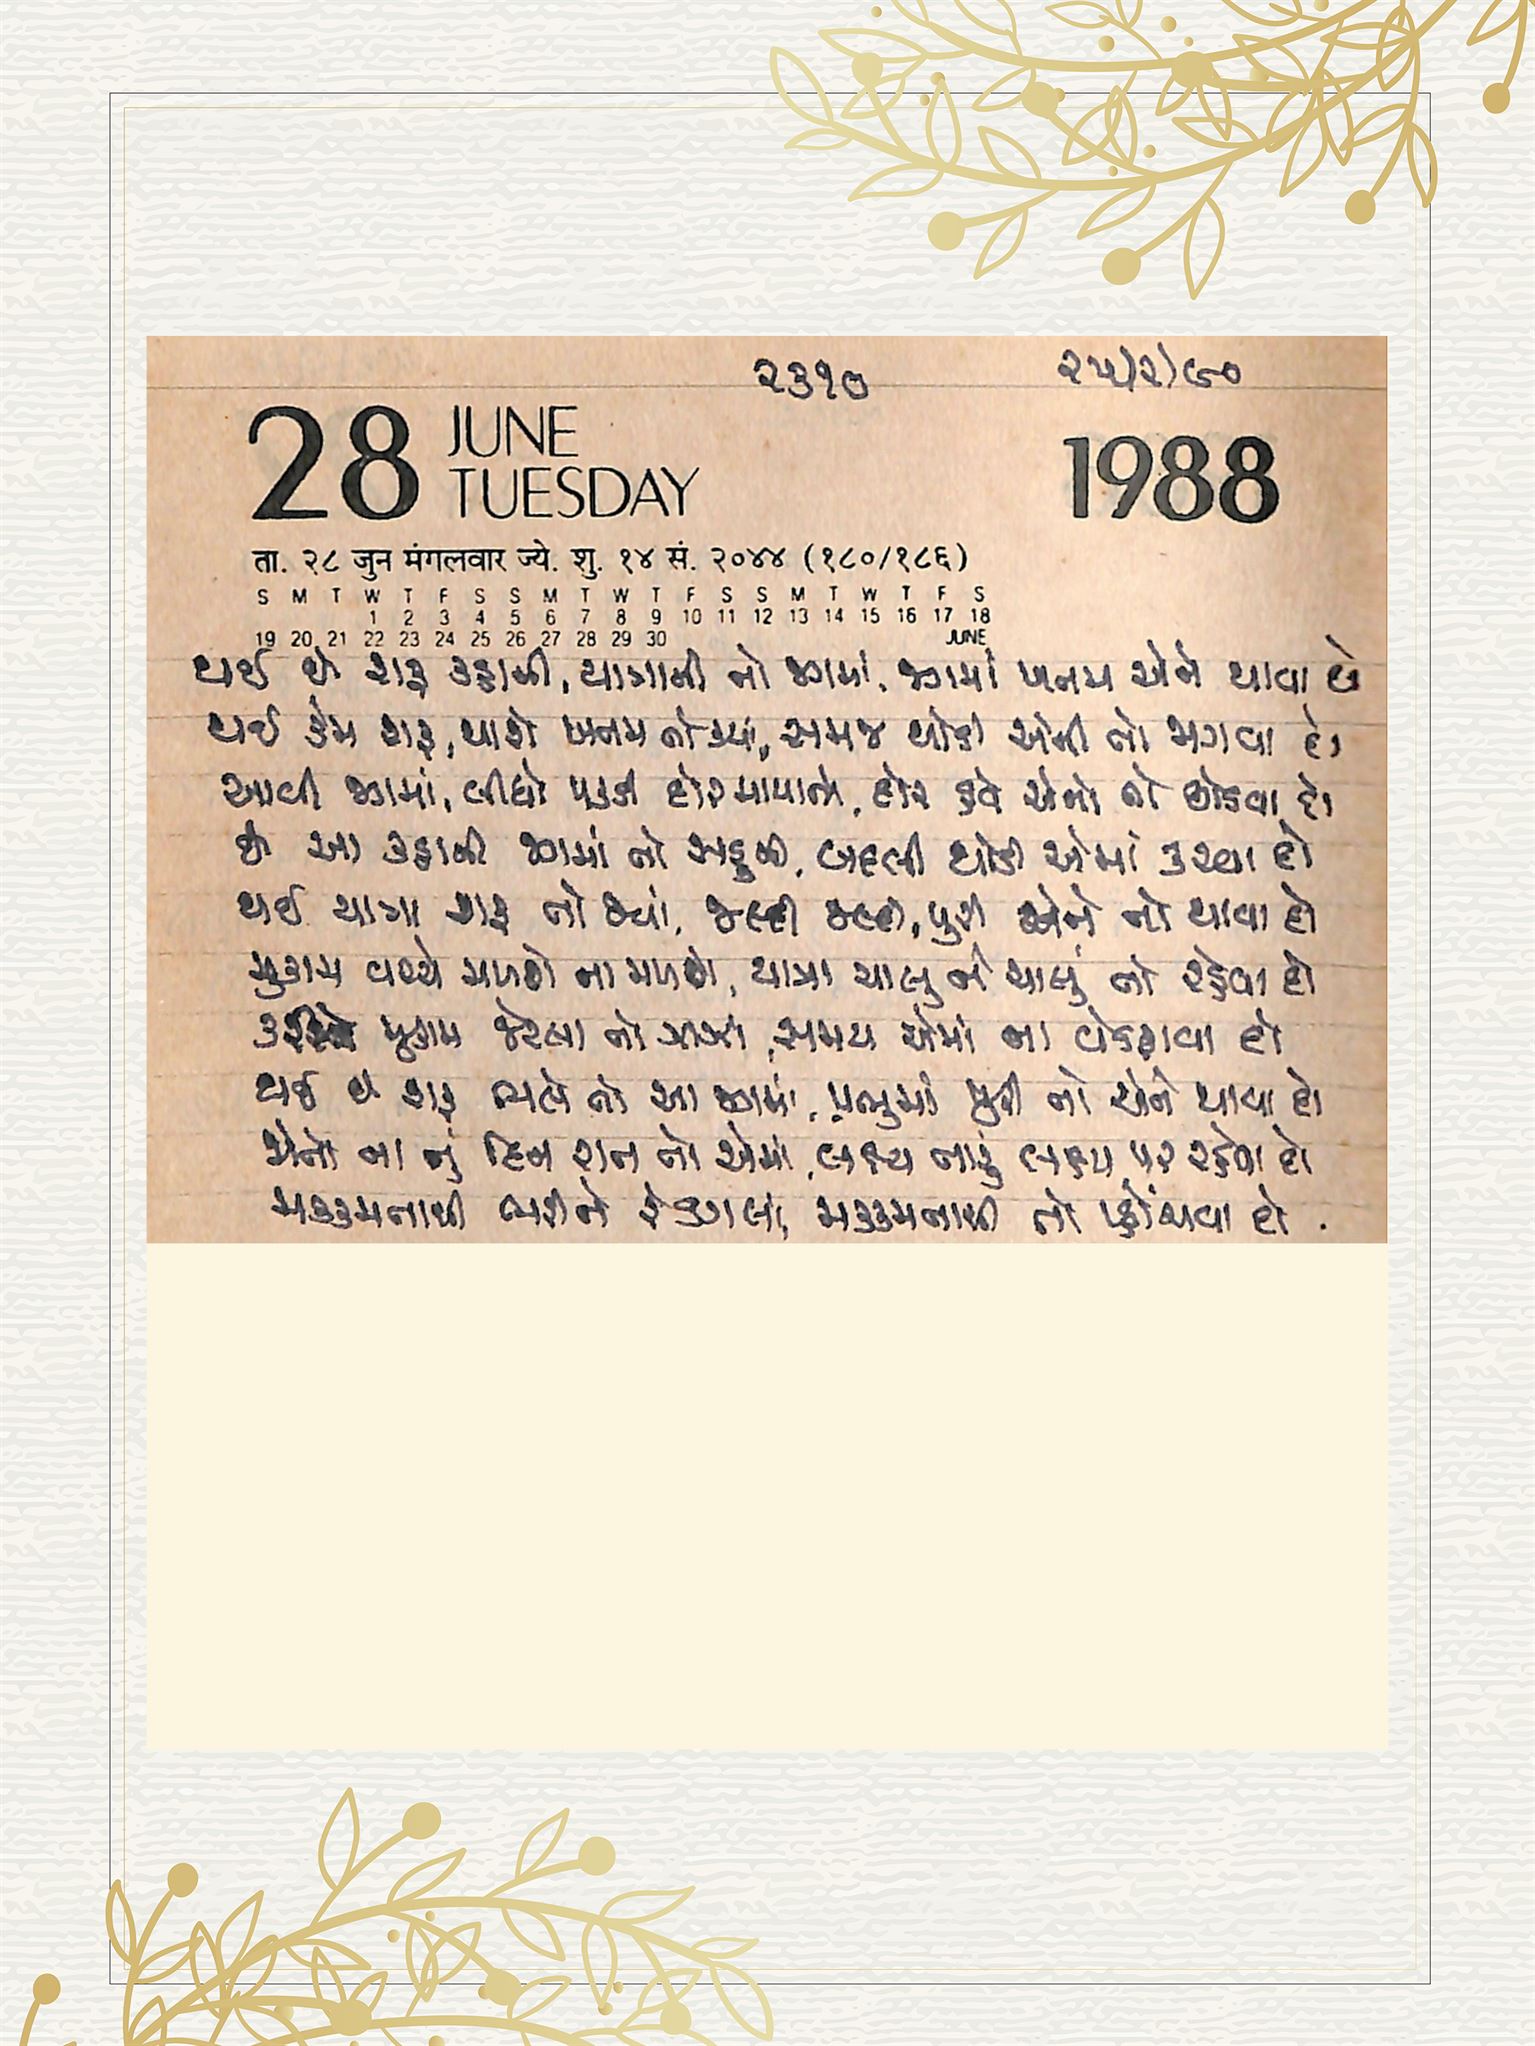 ૨૩૧૦ ૨૫/૨/૯૦
28 JUNE
TUESDAY
1988
ता. २८ जुन मंगलवार ज्ये. शु. १४ सं. २०४४ (१८०/१८६)
S M T W T F S S M T W T F S S M T W T F S
1 2 3 4 5 6 7 8 9 10 11 12 13 14 15 16 17 18
19 20 21 22 23 24 25 26 27 28 29 30 JUNE
થઈ છે શરૂ કહાની, યાત્રાની તો જગમાં, જગમાં ખતમ એને થાવા દો
થઈ કેમ શરૂ, થાશે ખતમ તો ક્યાં, સમજ થોડી એની તો મળવા દો
આવી જગમાં, લીધો પકડી દોર માયાનો, દોર હવે એનો તો છોડવા દો
છે આ કહાની જગમાં તો અટૂળી, બદલી થોડી એમાં કરવા દો
થઈ યાત્રા શરૂ તો જ્યાં, જલ્દી જલ્દી, પુરી એને તો થાવા દો
મુકામ વચ્ચે મળશે ના મળશે, યાત્રા ચાલુ ને ચાલું તો રહેવા દો
મુકામ જેટલા તો ઝાઝા, સમય એમાં ના વેડફાવા દો
થઈ છે શરૂ ભલે તો આ જગમાં, પ્રભુમાં પુરી તો એને થાવા દો
જોતો ના તું દિન રાત તો એમાં, લક્ષ્ય તારું લક્ષ્ય પર રહેવા દો
મક્કમતાથી ભરીને ડગલાં, મક્કમતાથી તો પ્હોંચવા દો .